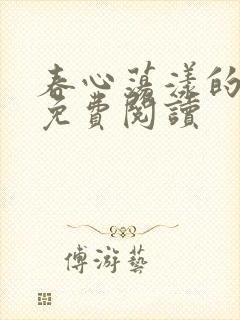 春心蕩漾的
免費閱讀
傅游藝